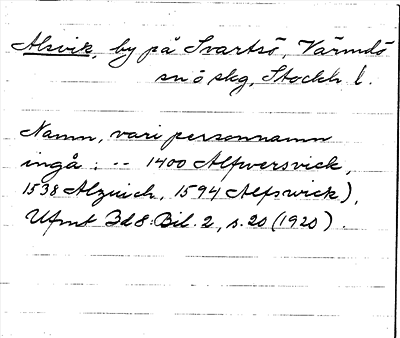 Alsvik, by på Svartsö, Värmdö
sn o skg, Stockh. l.
Namn, vari personnamn
ingå: -- 1400 Alfwersvick,
1538 Alzuich, 1594 Alfswick),
Ufmt Bd 8: Bil. 2, s. 20 (1920).